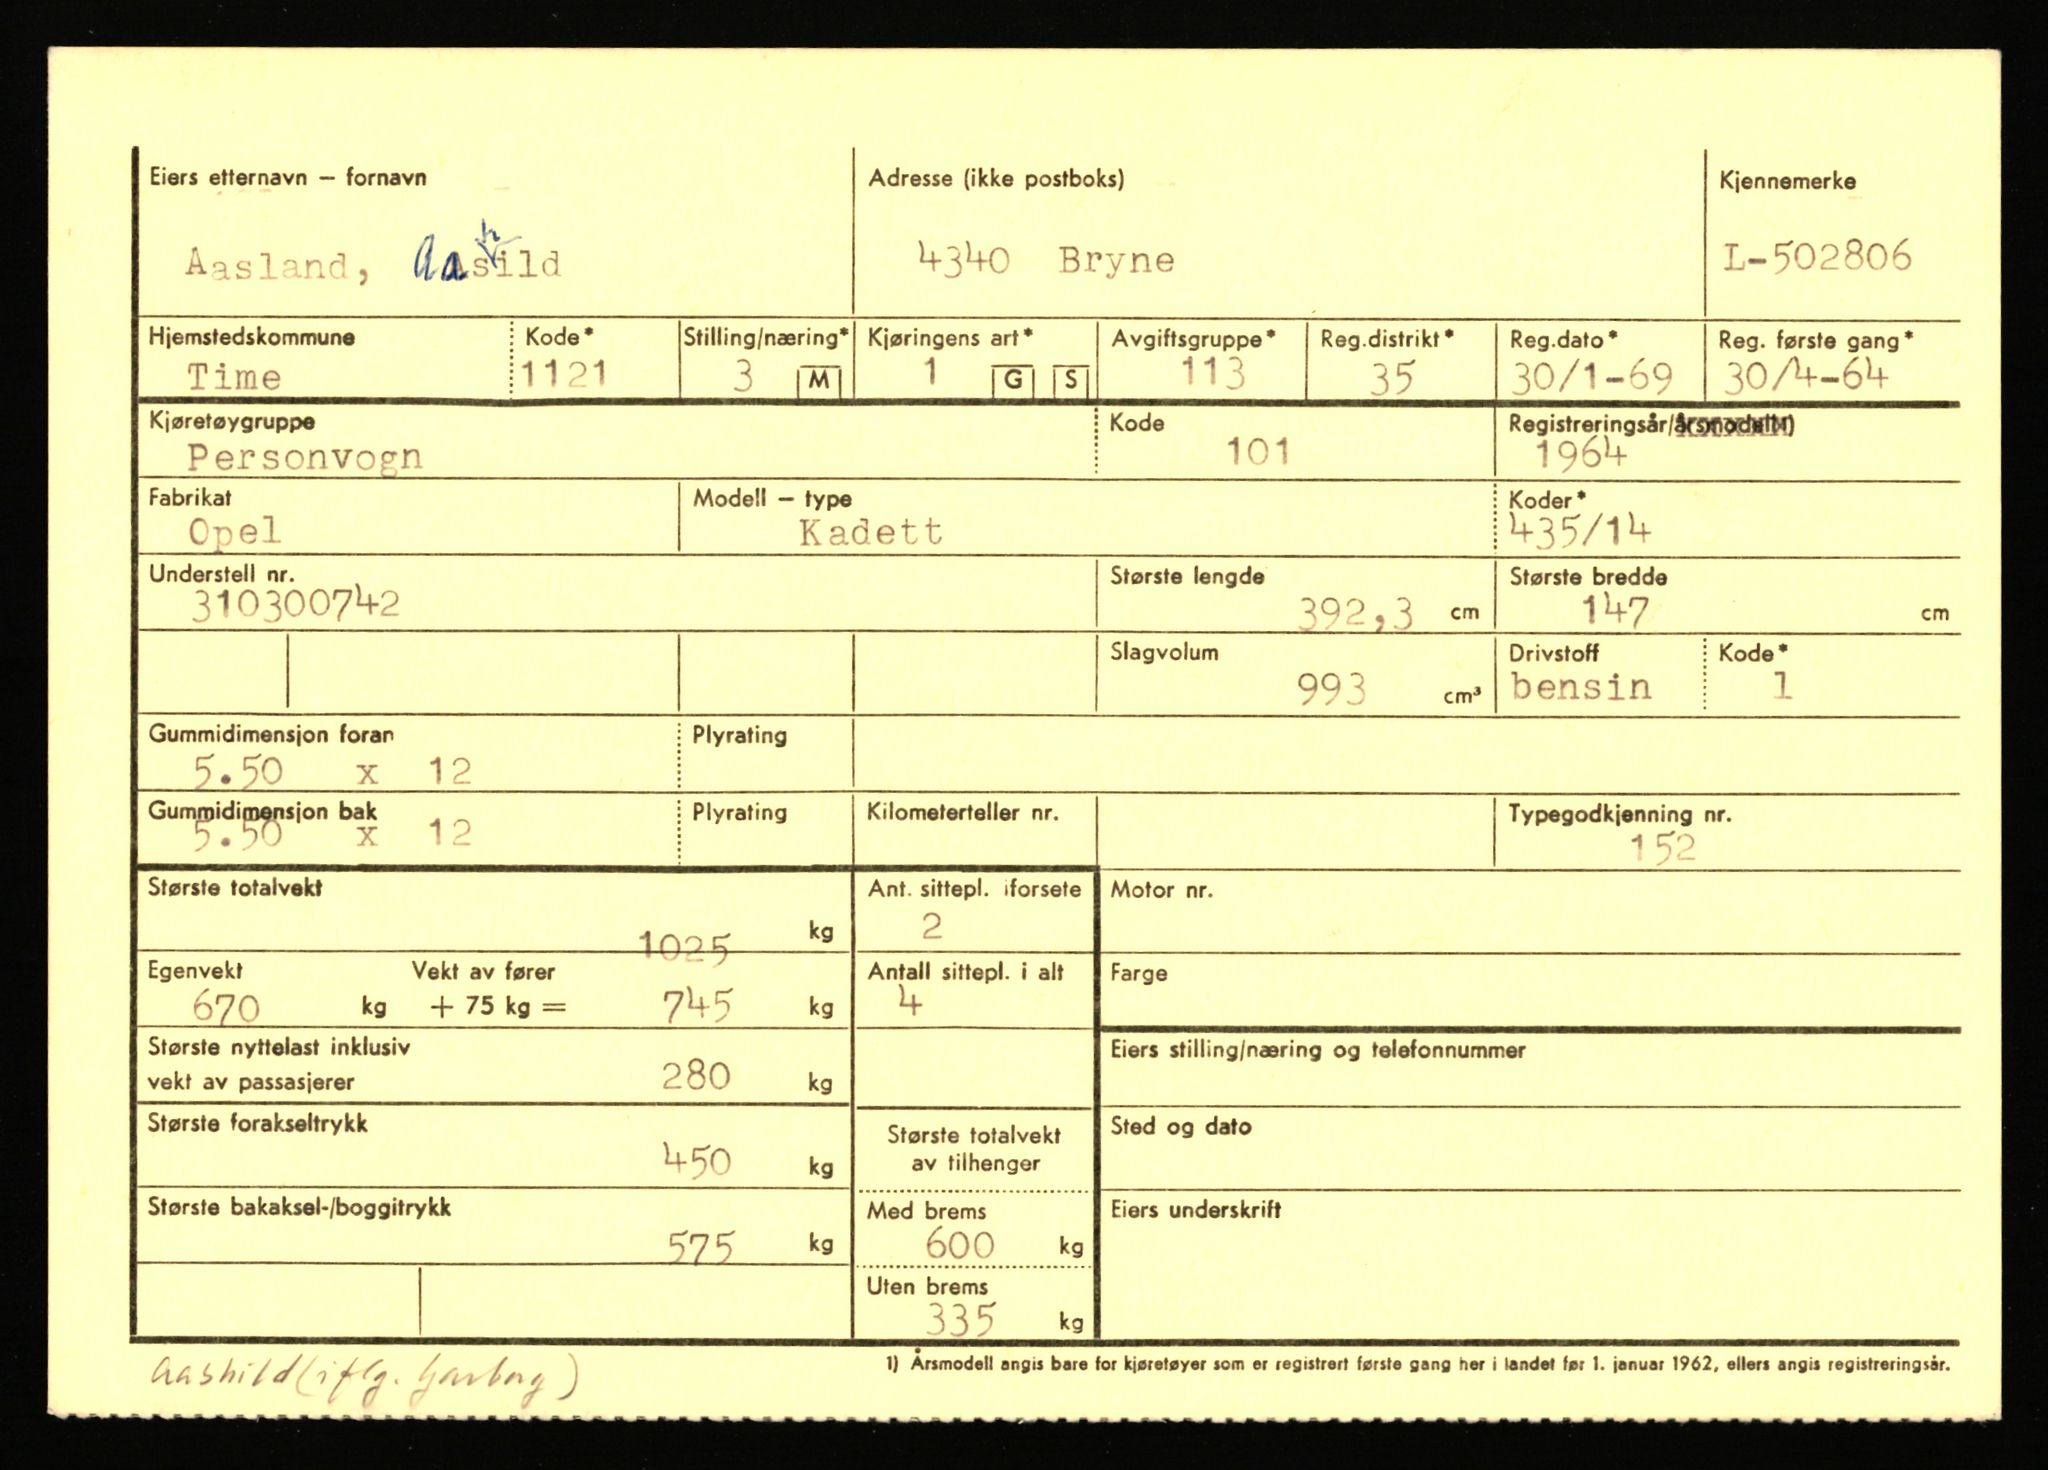 Eiers etternavn – fornavn Adresse (ikke postboks) Kjennemerke
Aasland, Aashild 4340 Bryne L-502806
Hjemstedskommune Kode* Stilling/næring* Kjøringens art* Avgiftsgruppe* Reg.distrikt* Reg.dato* Reg. første gang*
Time 1121 3 M 1 G S 113 35 30/1-69 30/4-64
Kjøretøygruppe Kode Registreringsår/årsmodell1)
Personvogn 101 1964
Fabrikat Modell – type Koder*
Opel Kadett 435/14
Understell nr. Største lengde Største bredde
310300742 392,3 cm 147 cm
Slagvolum Drivstoff Kode*
993 cm³ bensin 1
Gummidimensjon foran Plyrating
5.50 x 12
Gummidimensjon bak Plyrating Kilometerteller nr. Typegodkjenning nr.
5.50 x 12 152
Største totalvekt Ant. sittepl. iforsete Motor nr.
1025 kg 2
Egenvekt Vekt av fører Antall sittepl. i alt Farge
670 kg + 75 kg = 745 kg 4
Største nyttelast inklusiv Eiers stilling/næring og telefonnummer
vekt av passasjerer 280 kg
Største forakseltrykk Største totalvekt Sted og dato
450 kg av tilhenger
Største bakaksel-/boggitrykk Med brems Eiers underskrift
575 kg 600 kg
Uten brems
335 kg
1) Årsmodell angis bare for kjøretøyer som er registrert første gang her i landet før 1. januar 1962, ellers angis registreringsår.
Aashild (iflg. Garborg)